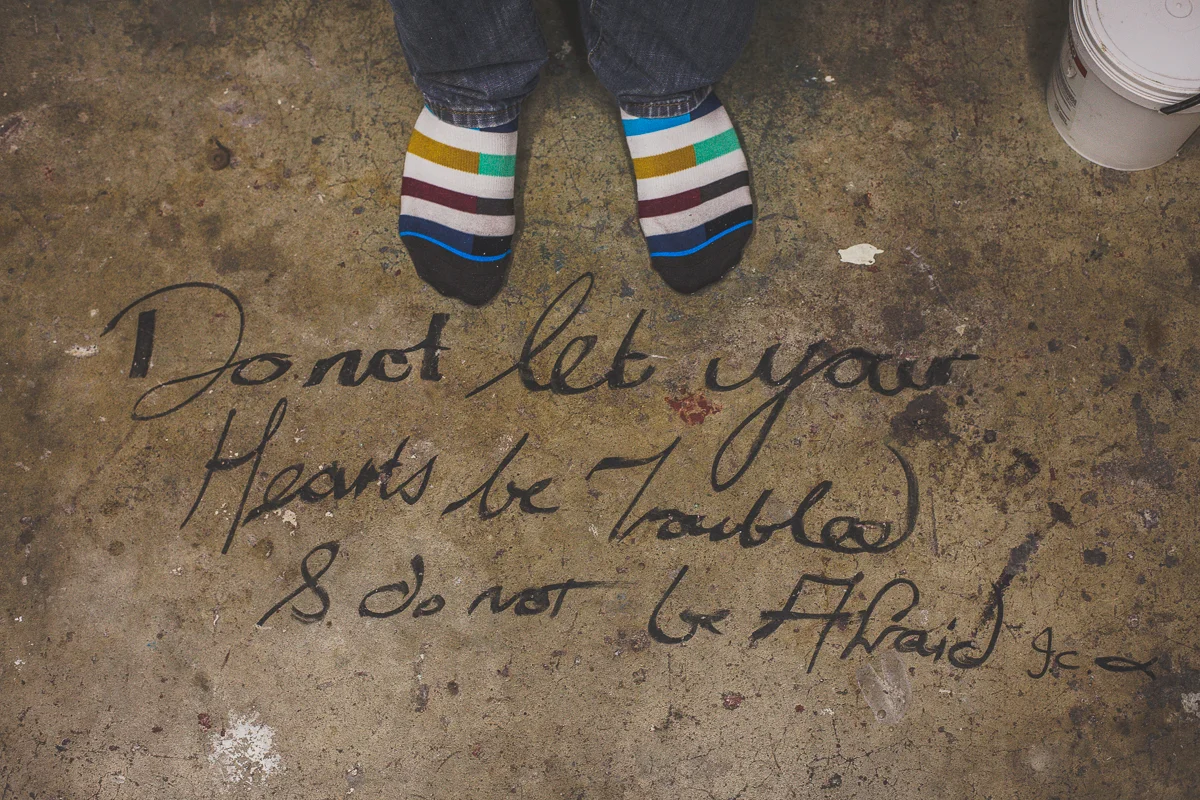 Do not let your
Hearts be Troubled
& do not be Afraid Jc